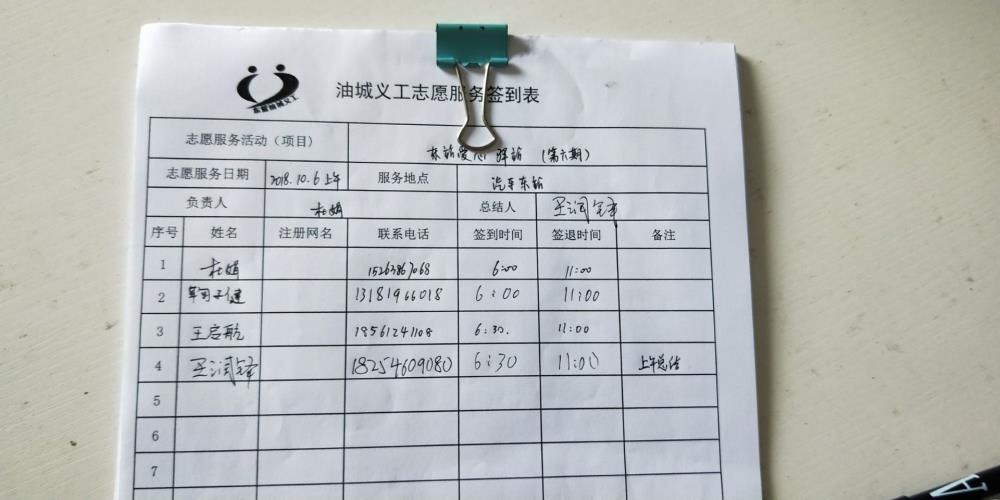 东营油城义工
油城义工志愿服务签到表
志愿服务活动（项目） 东站爱心驿站（第六期）
志愿服务日期 2018.10.6上午 服务地点 汽车东站
负责人 杜娟 总结人 王润泽
序号 姓名 注册网名 联系电话 签到时间 签退时间 备注
1 杜娟 15263867068 6:00 11:00
2 子健 13181966018 6:00 11:00
3 王启航 19561241108 6:30. 11:00
4 王润泽 18254609080 6:30 11:00 上午总结
5
6
7
A